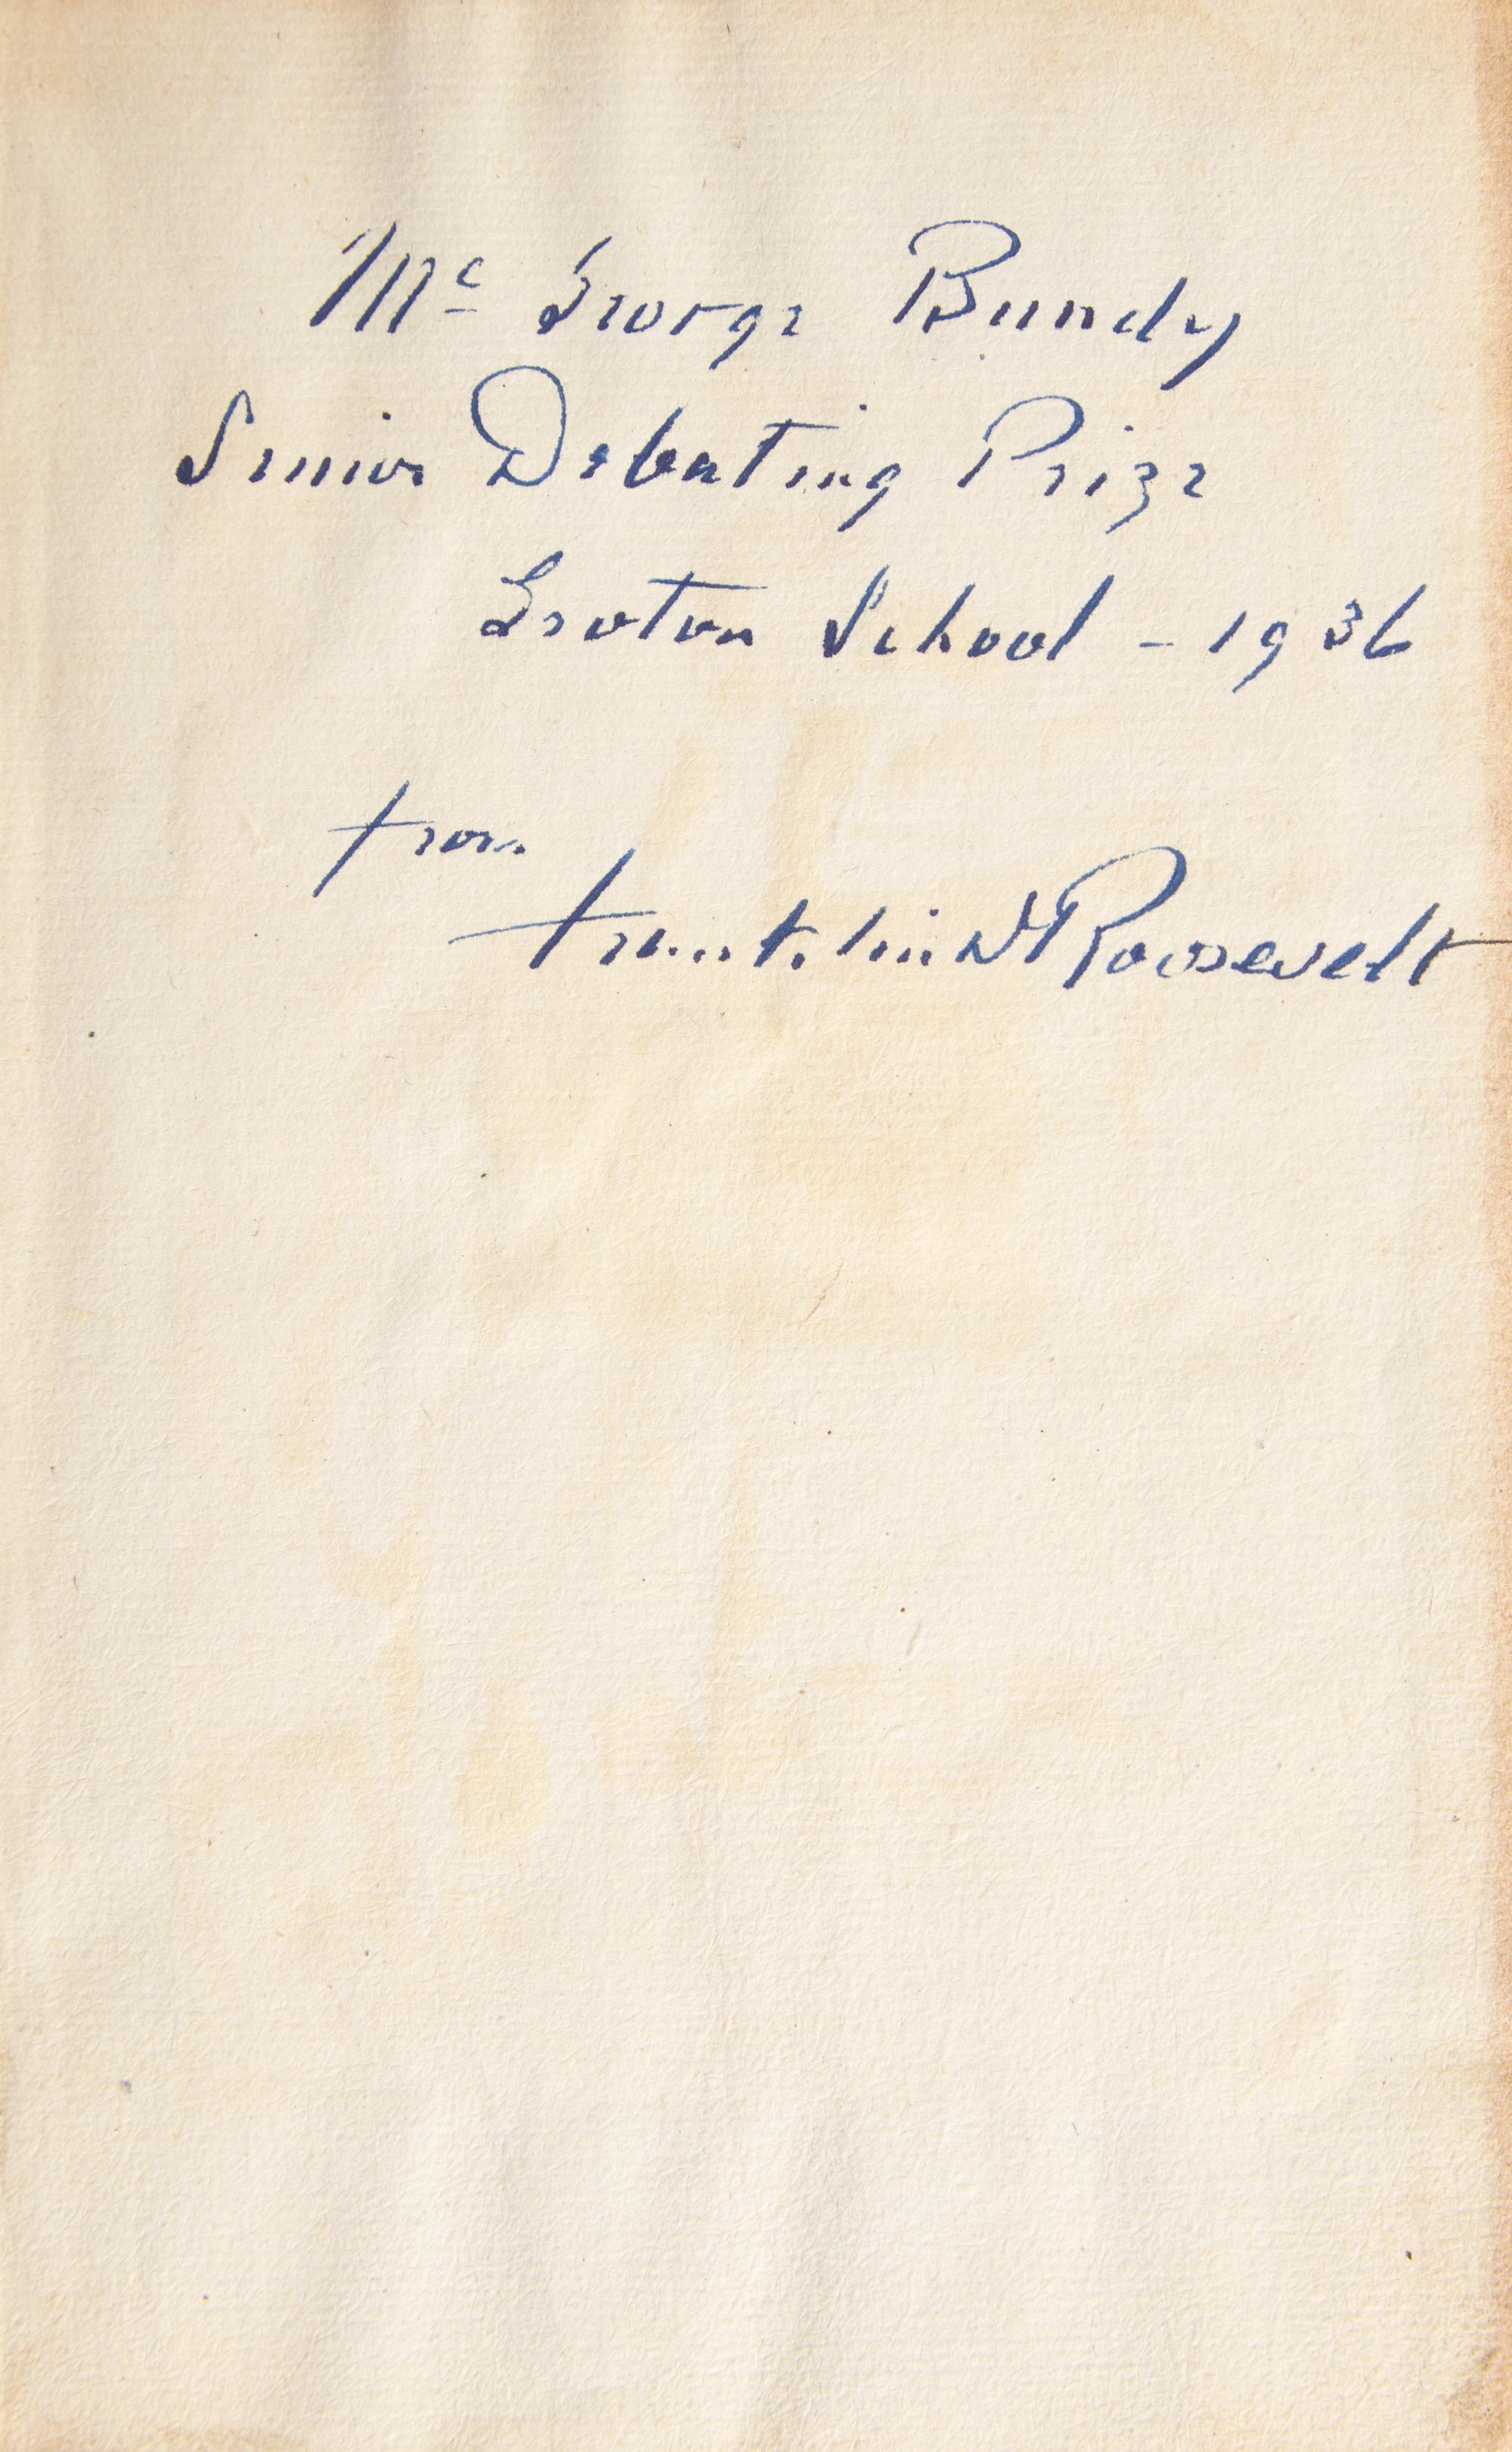 Mc George Bundy
Senior Debating Prize
Groton School - 1936
from
Franklin D Roosevelt